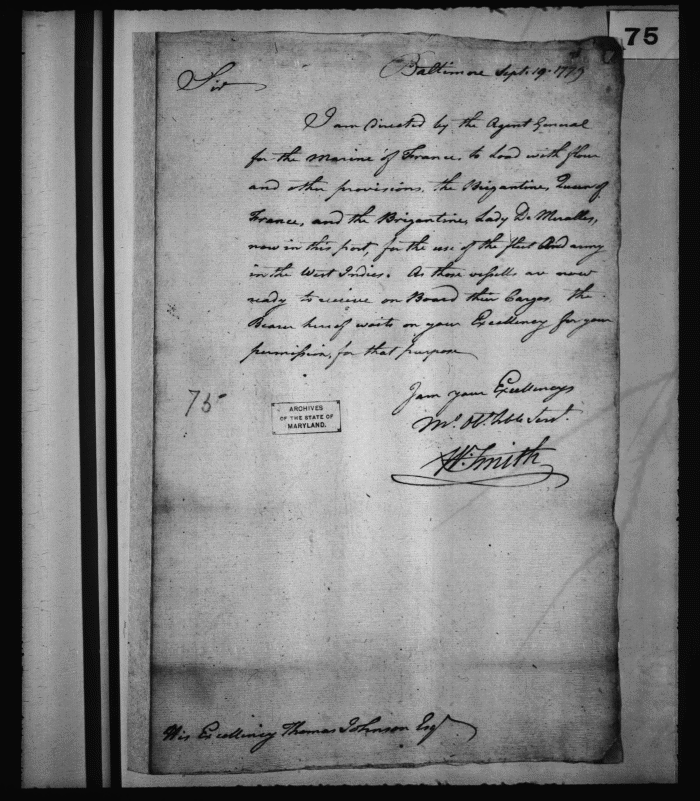 75
Baltimore Sept. 19. 1779
Sir
I am directed by the Agent General
for the Marine of France, to Load with flour
and other provisions, the Brigantine, Queen of
France, and the Brigantine, Lady De Miralles,
now in this port, for the use of the fleet And army
in the West Indies. As those vessells are now
ready to receive on Board their Cargos, the
Bearer hereof waits on your Excellency for your
permission, for that purpose
I am your Excellencys
Mo. Ob. hble Servt.
Wm. Smith
75
ARCHIVES
OF THE STATE OF
MARYLAND.
His Excellency Thomas Johnson Esqr.